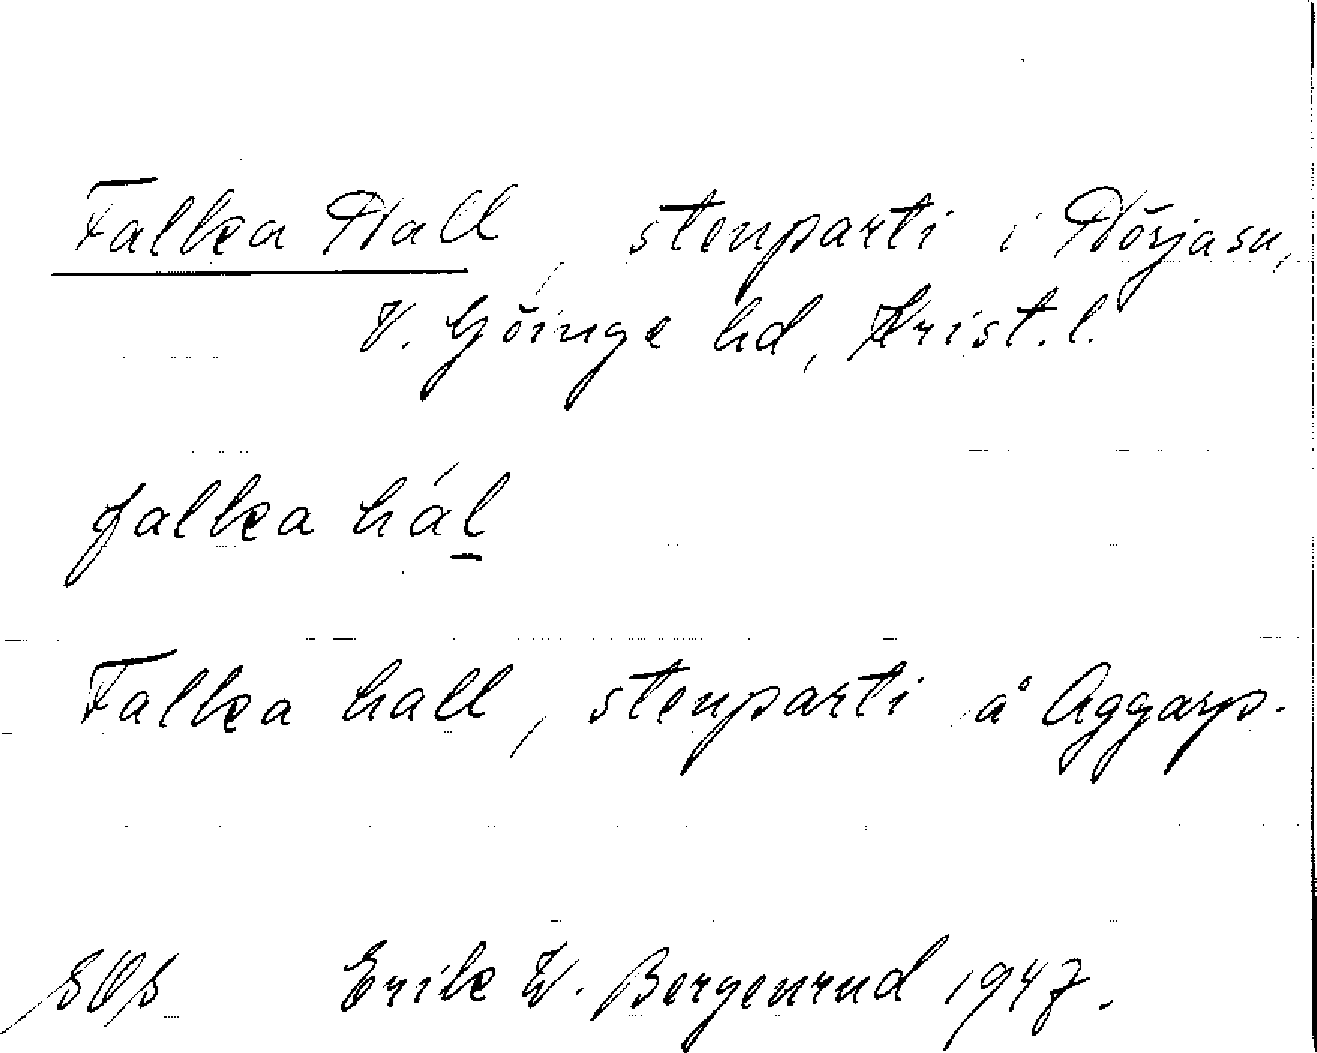 Falka Hall, stenparti i Hörja sn,
V. Göinge hd, Krist. l.
falka hál
Falka hall, stenparti å Aggarp.
SOS Erik W. Bergenrud 1947.